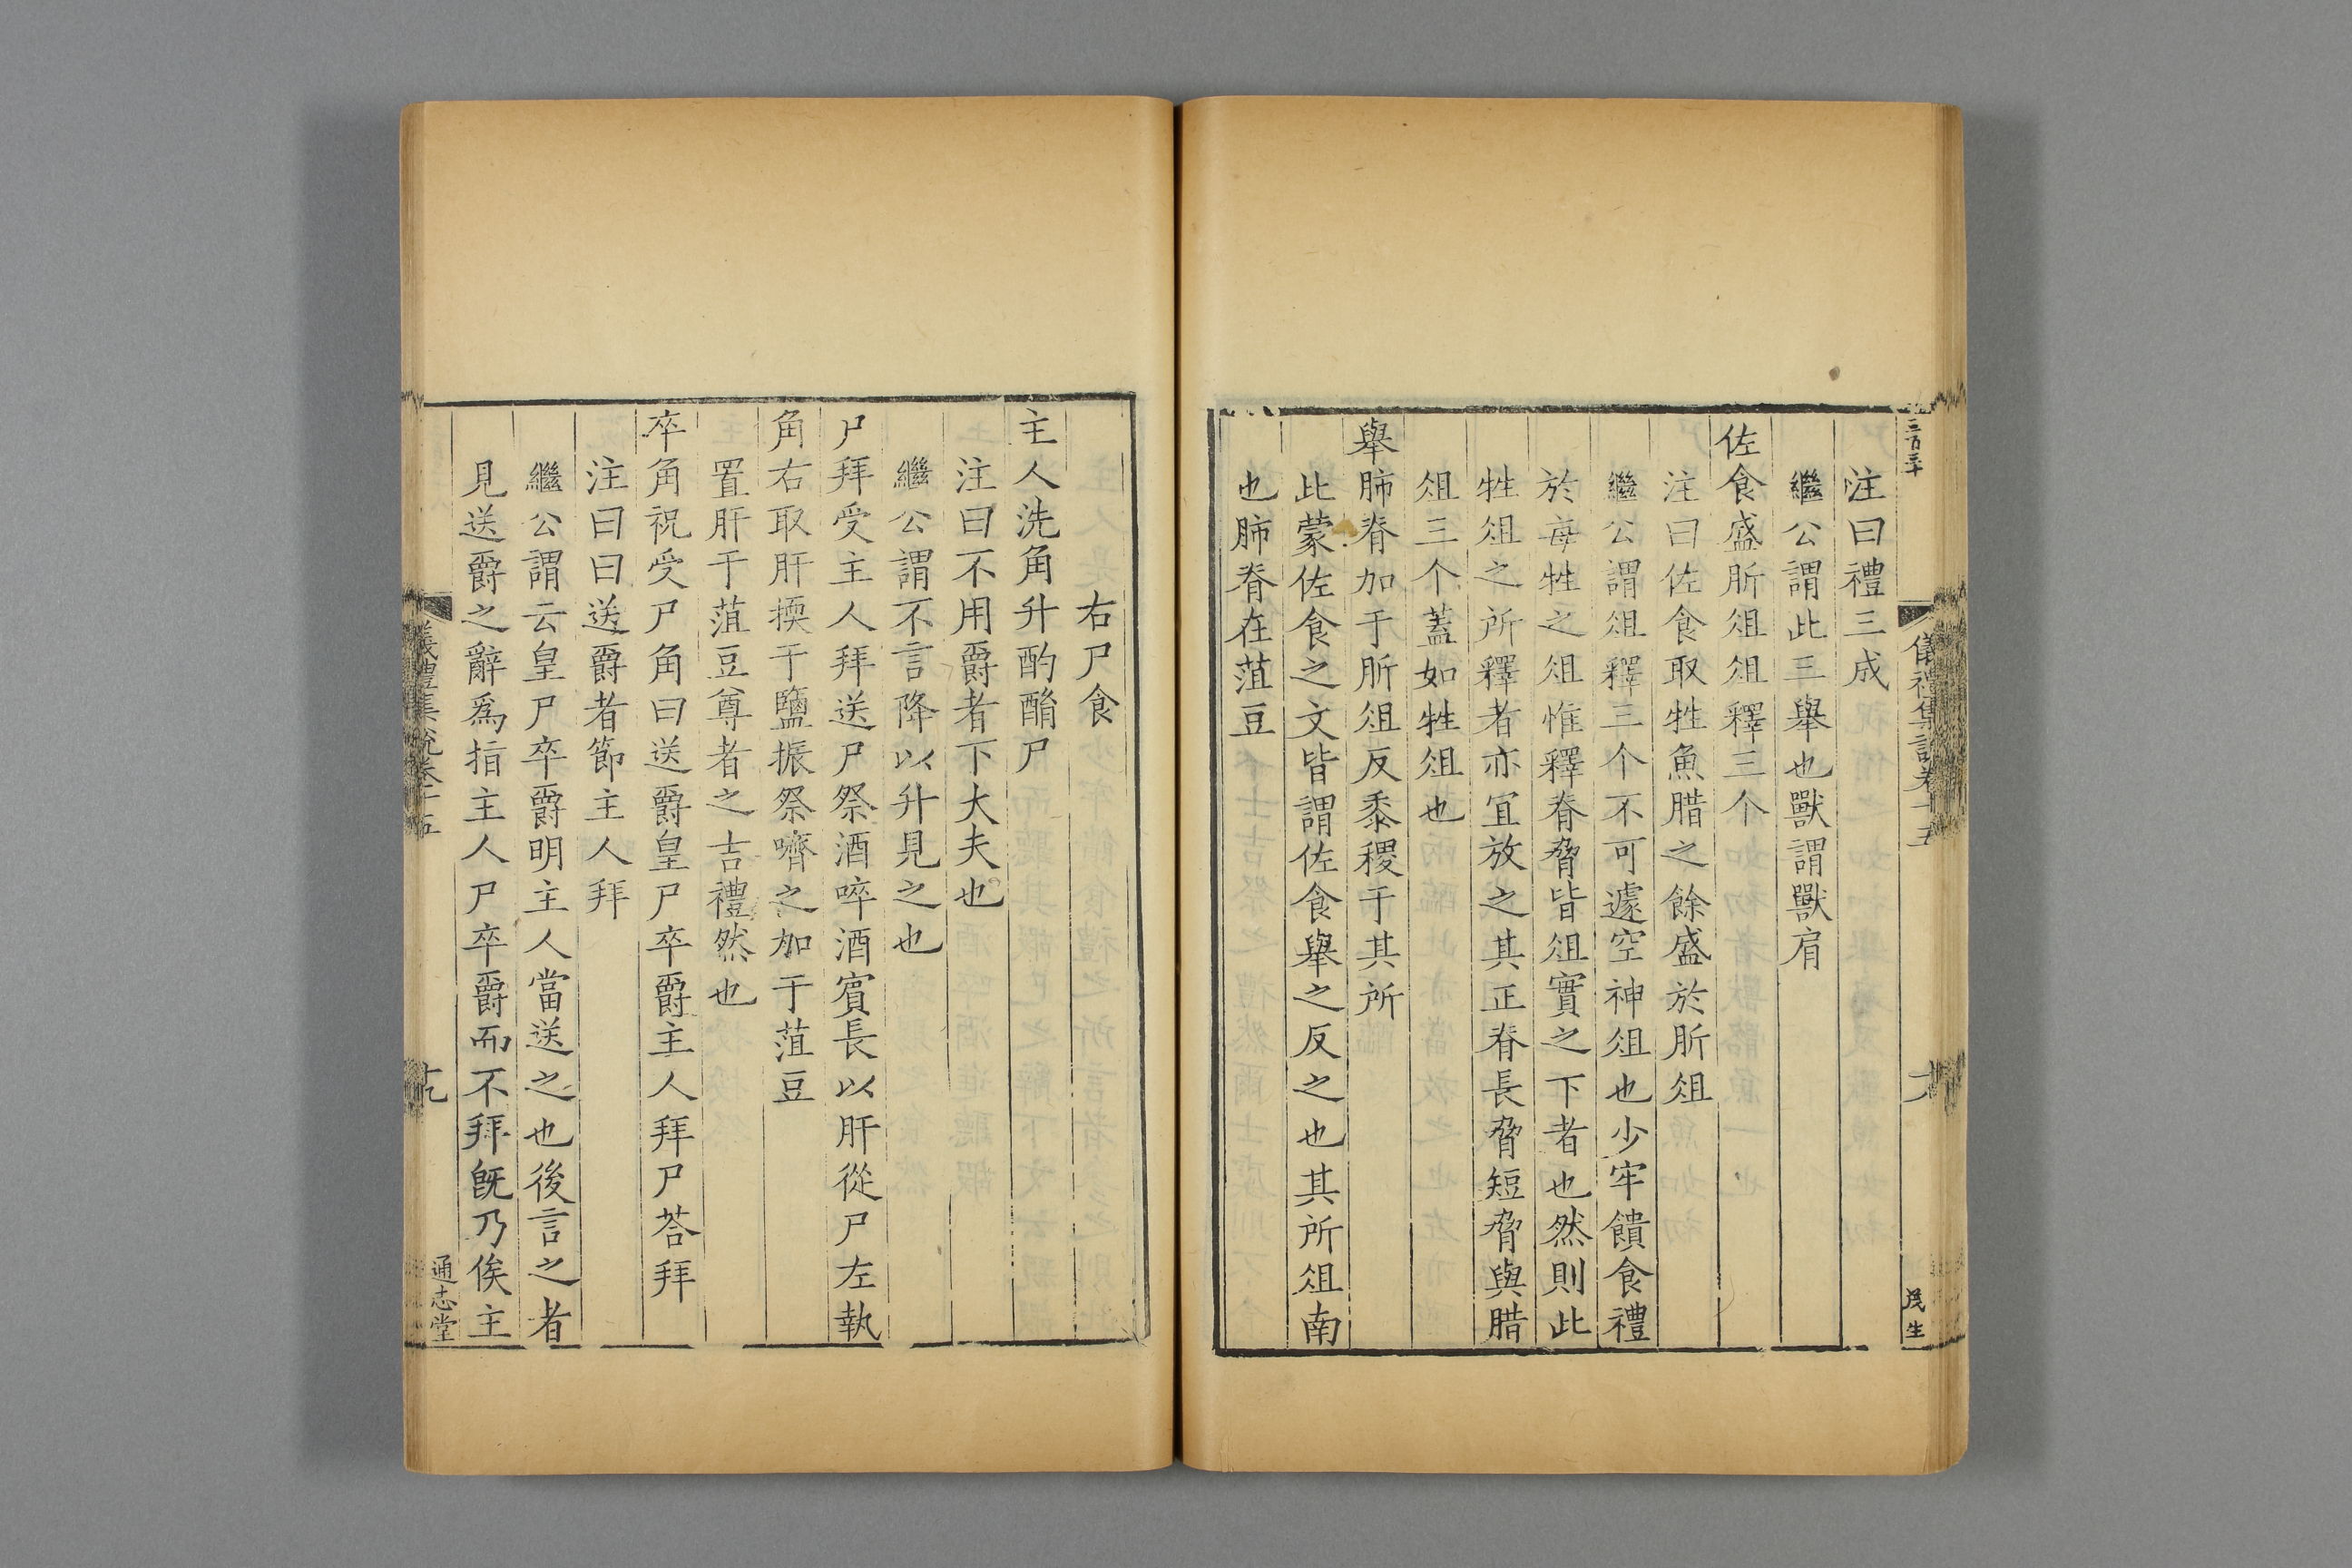 注曰禮三成
繼公謂此三舉也獸謂獸肩
佐食盛肵俎俎釋三个
注曰佐食取牲魚腊之餘盛於肵俎
繼公謂俎釋三个不可遽空神俎也少牢饋食禮
於每牲之俎惟釋脊脅皆俎實之下者也然則此
牲俎之所釋者亦宜放之其正脊長脅短脅與腊
俎三个蓋如牲俎也
舉肺脊加于肵俎反黍稷于其所
此蒙佐食之文皆謂佐食舉之反之也其所俎南
也肺脊在菹豆
儀禮集說卷十五
茂生
右尸食
主人洗角升酌酳尸
注曰不用爵者下大夫也
繼公謂不言降以升見之也
尸拜受主人拜送尸祭酒啐酒賓長以肝從尸左執
角右取肝擩于鹽振祭嚌之加于菹豆
置肝于菹豆尊者之吉禮然也
卒角祝受尸角曰送爵皇尸卒爵主人拜尸荅拜
注曰曰送爵者節主人拜
繼公謂云皇尸卒爵明主人當送之也後言之者
見送爵之辭爲指主人尸卒爵而不拜旣乃俟主
儀禮集說卷十五
通志堂